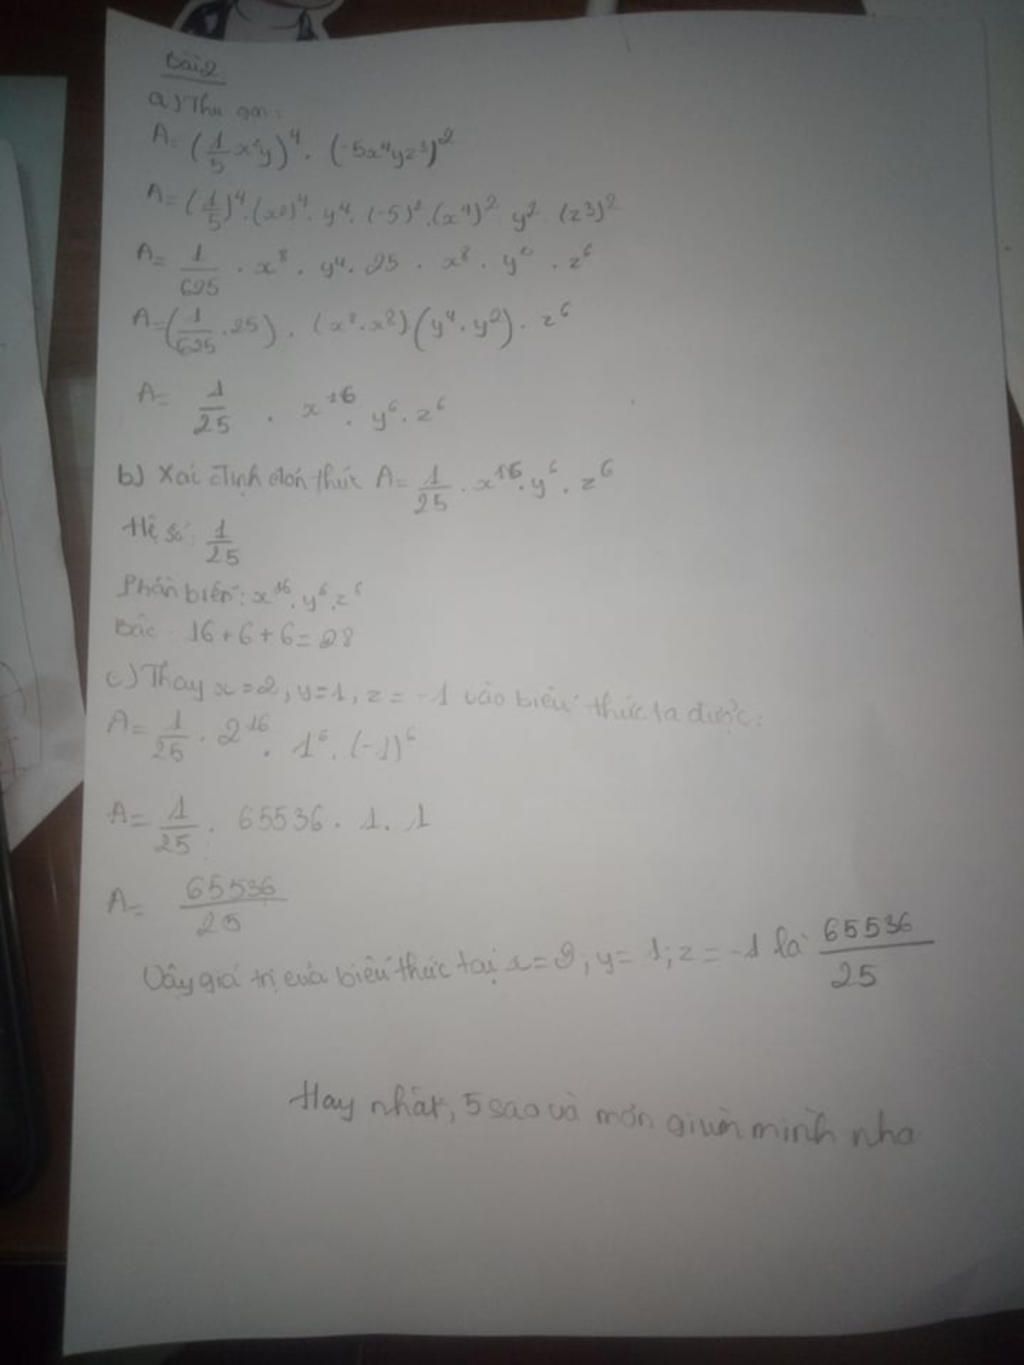 Bài 2
a) Thu gọn:
A = (1/5 x²y)⁴ . (-5x⁴yz³)²
A = (1/5)⁴ . (x²)⁴ . y⁴ . (-5)² . (x⁴)² y² . (z³)²
A = 1/625 . x⁸ . y⁴ . 25 . x⁸ . y² . z⁶
A = (1/625 . 25) . (x⁸ . x⁸) (y⁴ . y²) . z⁶
A = 1/25 . x¹⁶ . y⁶ . z⁶
b) Xác định đơn thức A = 1/25 . x¹⁶ . y⁶ . z⁶
Hệ số: 1/25
Phần biến: x¹⁶ . y⁶ . z⁶
Bậc: 16 + 6 + 6 = 28
c) Thay x = 2, y = 1, z = -1 vào biểu thức ta được:
A = 1/25 . 2¹⁶ . 1⁶ . (-1)⁶
A = 1/25 . 65536 . 1 . 1
A = 65536/25
Vậy giá trị của biểu thức tại x = 2; y = 1; z = -1 là 65536/25
Hay nhất, 5 sao và mơn giùm mình nha